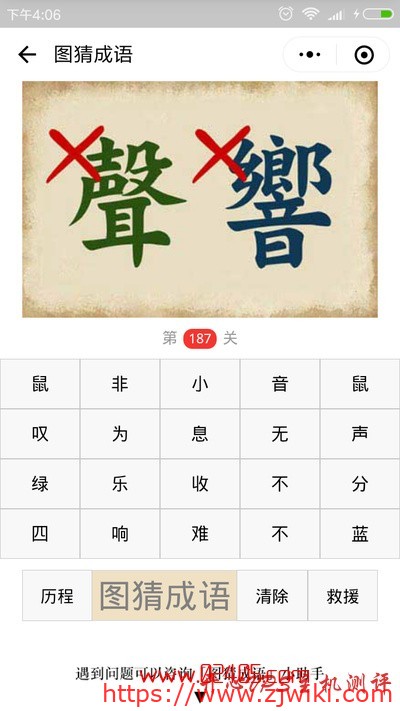 下午4:06
图猜成语
聲響
第 187 关
鼠 非 小 音 鼠
叹 为 息 无 声
绿 乐 收 不 分
四 响 难 不 蓝
历程 图猜成语 清除 救援
遇到问题可以咨询
小助手
主机测评
https://www.zjwiki.com